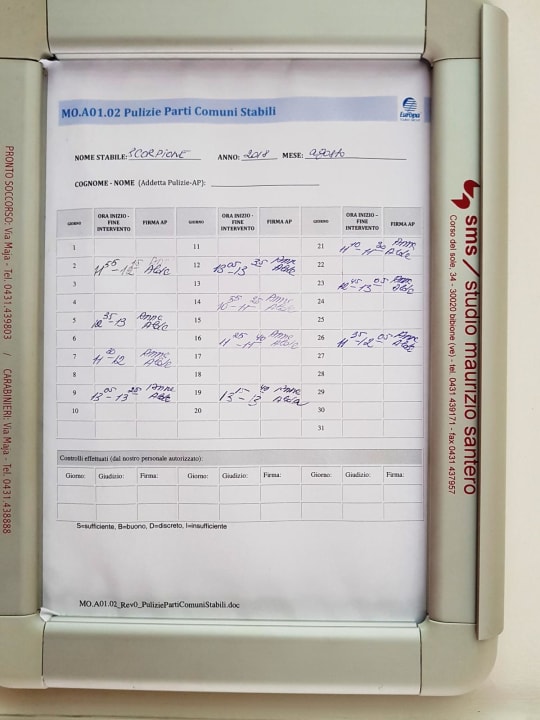 MO.A01.02 Pulizie Parti Comuni Stabili
EurOgni
NOME STABILE: SCORPIONE ANNO: 2018 MESE: agosto
COGNOME - NOME (Addetta Pulizie-AP):
GIORNO ORA INIZIO - FINE INTERVENTO FIRMA AP GIORNO ORA INIZIO - FINE INTERVENTO FIRMA AP GIORNO ORA INIZIO - FINE INTERVENTO FIRMA AP
1 11 21 11 40 - 11
2 11 55 - 12 12 13 05 - 13 25 22
3 13 23 12 45 - 13 05
4 14 24
5 12 35 - 13 15 25
6 16 11 25 - 11 40 26 11 35 - 12 05
7 11 - 12 17 27
8 18 28
9 13 05 - 13 25 19 13 15 - 13 40 29
10 20 30
31
Controlli effettuati (dal nostro personale autorizzato):
Giorno: Giudizio: Firma: Giorno: Giudizio: Firma: Giorno: Giudizio: Firma:
S=sufficiente, B=buono, D=discreto, I=insufficiente
MO.A01.02_Rev0_PuliziePartiComuniStabili.doc
PRONTO SOCCORSO: Via Maja - Tel. 0431.439803 / CARABINIERI: Via Maja - Tel. 0431.438888
sms / studio maurizio santero
Corso del sole, 34 - 30020 bibione (ve) - tel. 0431 439171 - fax 0431 437957